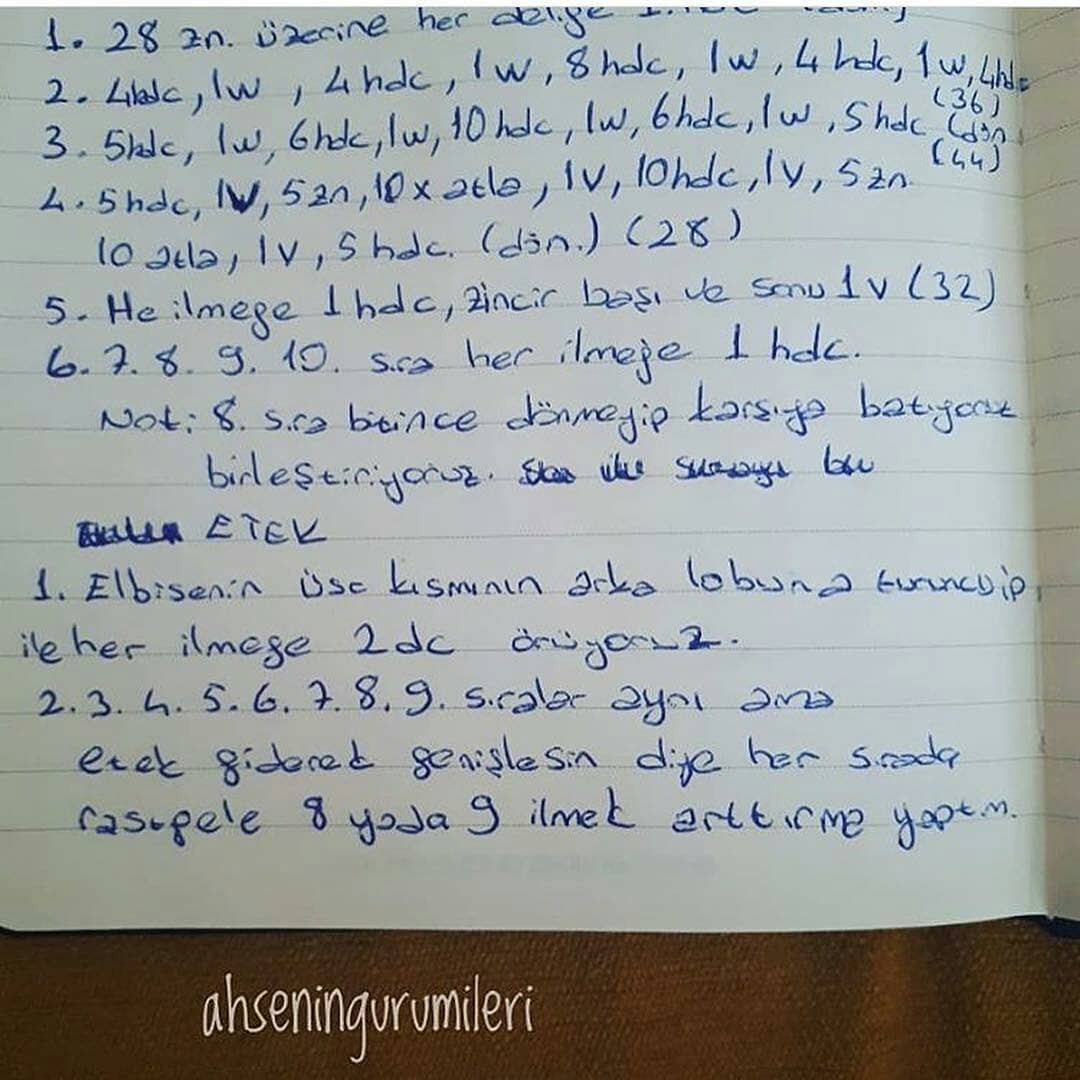 1. 28 zn. üzerine her deliğe
2. 4hdc, 1w, 4 hdc, 1w, 8 hdc, 1w, 4 hdc, 1w, 4hdc
(36)
3. 5hdc, 1w, 6hdc, 1w, 10 hdc, 1w, 6hdc, 1w, 5 hdc (dön.
(44)
4. 5hdc, 1V, 5 zn, 10 x atla, 1V, 10hdc, 1V, 5 zn.
10 atla, 1V, 5 hdc. (dön.) (28)
5. He ilmeğe 1 hdc, zincir başı ve sonu 1v (32)
6. 7. 8. 9. 10. sıra her ilmeğe 1 hdc.
Not: 8. sıra bitince dönmeyip karşıya batıyoruz
birleştiriyoruz.
ETEK
1. Elbisenin üst kısmının arka lobuna turuncu ip
ile her ilmeğe 2 dc örüyoruz.
2. 3. 4. 5. 6. 7. 8. 9. sıralar aynı ama
etek giderek genişlesin diye her sırada
rastgele 8 yada 9 ilmek arttırma yaptım.
ahseningurumileri